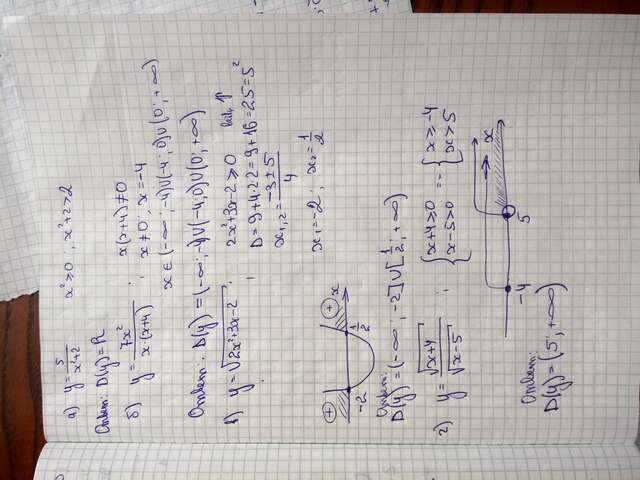 а) y = 5/(x²+2)   x² ≥ 0 , x²+2 > 2
Ответ: D(y) = R
б) y = 7x²/(x·(x+4)) ;   x(x+4) ≠ 0
x ≠ 0 ; x = -4
x ∈ (-∞; -4)∪(-4; 0)∪(0; +∞)
Ответ: D(y) = (-∞; -4)∪(-4; 0)∪(0; +∞)
в) y = √(2x²+3x-2) ;   2x²+3x-2 ≥ 0
D = 9+4·2·2 = 9+16 = 25 = 5²
x₁,₂ = (-3±5)/4
x₁ = -2 ; x₂ = 1/2
+ + x
-2 1/2
Ответ:
D(y) = (-∞; -2]∪[1/2; +∞)
г) y = √(x+4)/√(x-5) ;   { x+4 ≥ 0   = { x ≥ -4
{ x-5 > 0   { x > 5
x
-4 5
Ответ:
D(y) = (5; +∞)